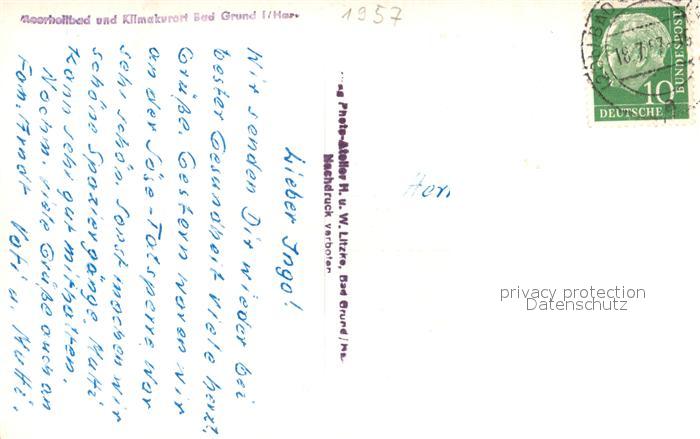 Moorheilbad und Klimakurort Bad Grund i/Harz
1957
Lieber Ingo!
Wir senden Dir wieder bei
bester Gesundheit viele herzl.
Grüße. Gestern waren wir
an der Söse-Talsperre, war
sehr schön. Sonst machen wir
schöne Spaziergänge. Mutti
kann sehr gut mithalten.
Nochm. viele Grüße auch an
Fam. Arndt Vati u. Mutti.
Photo-Atelier H. u. W. Litzke, Bad Grund/Ha
Nachdruck verboten
Herrn
BUNDESPOST
10
DEUTSCHE
BAD
18.7.57
privacy protection
Datenschutz